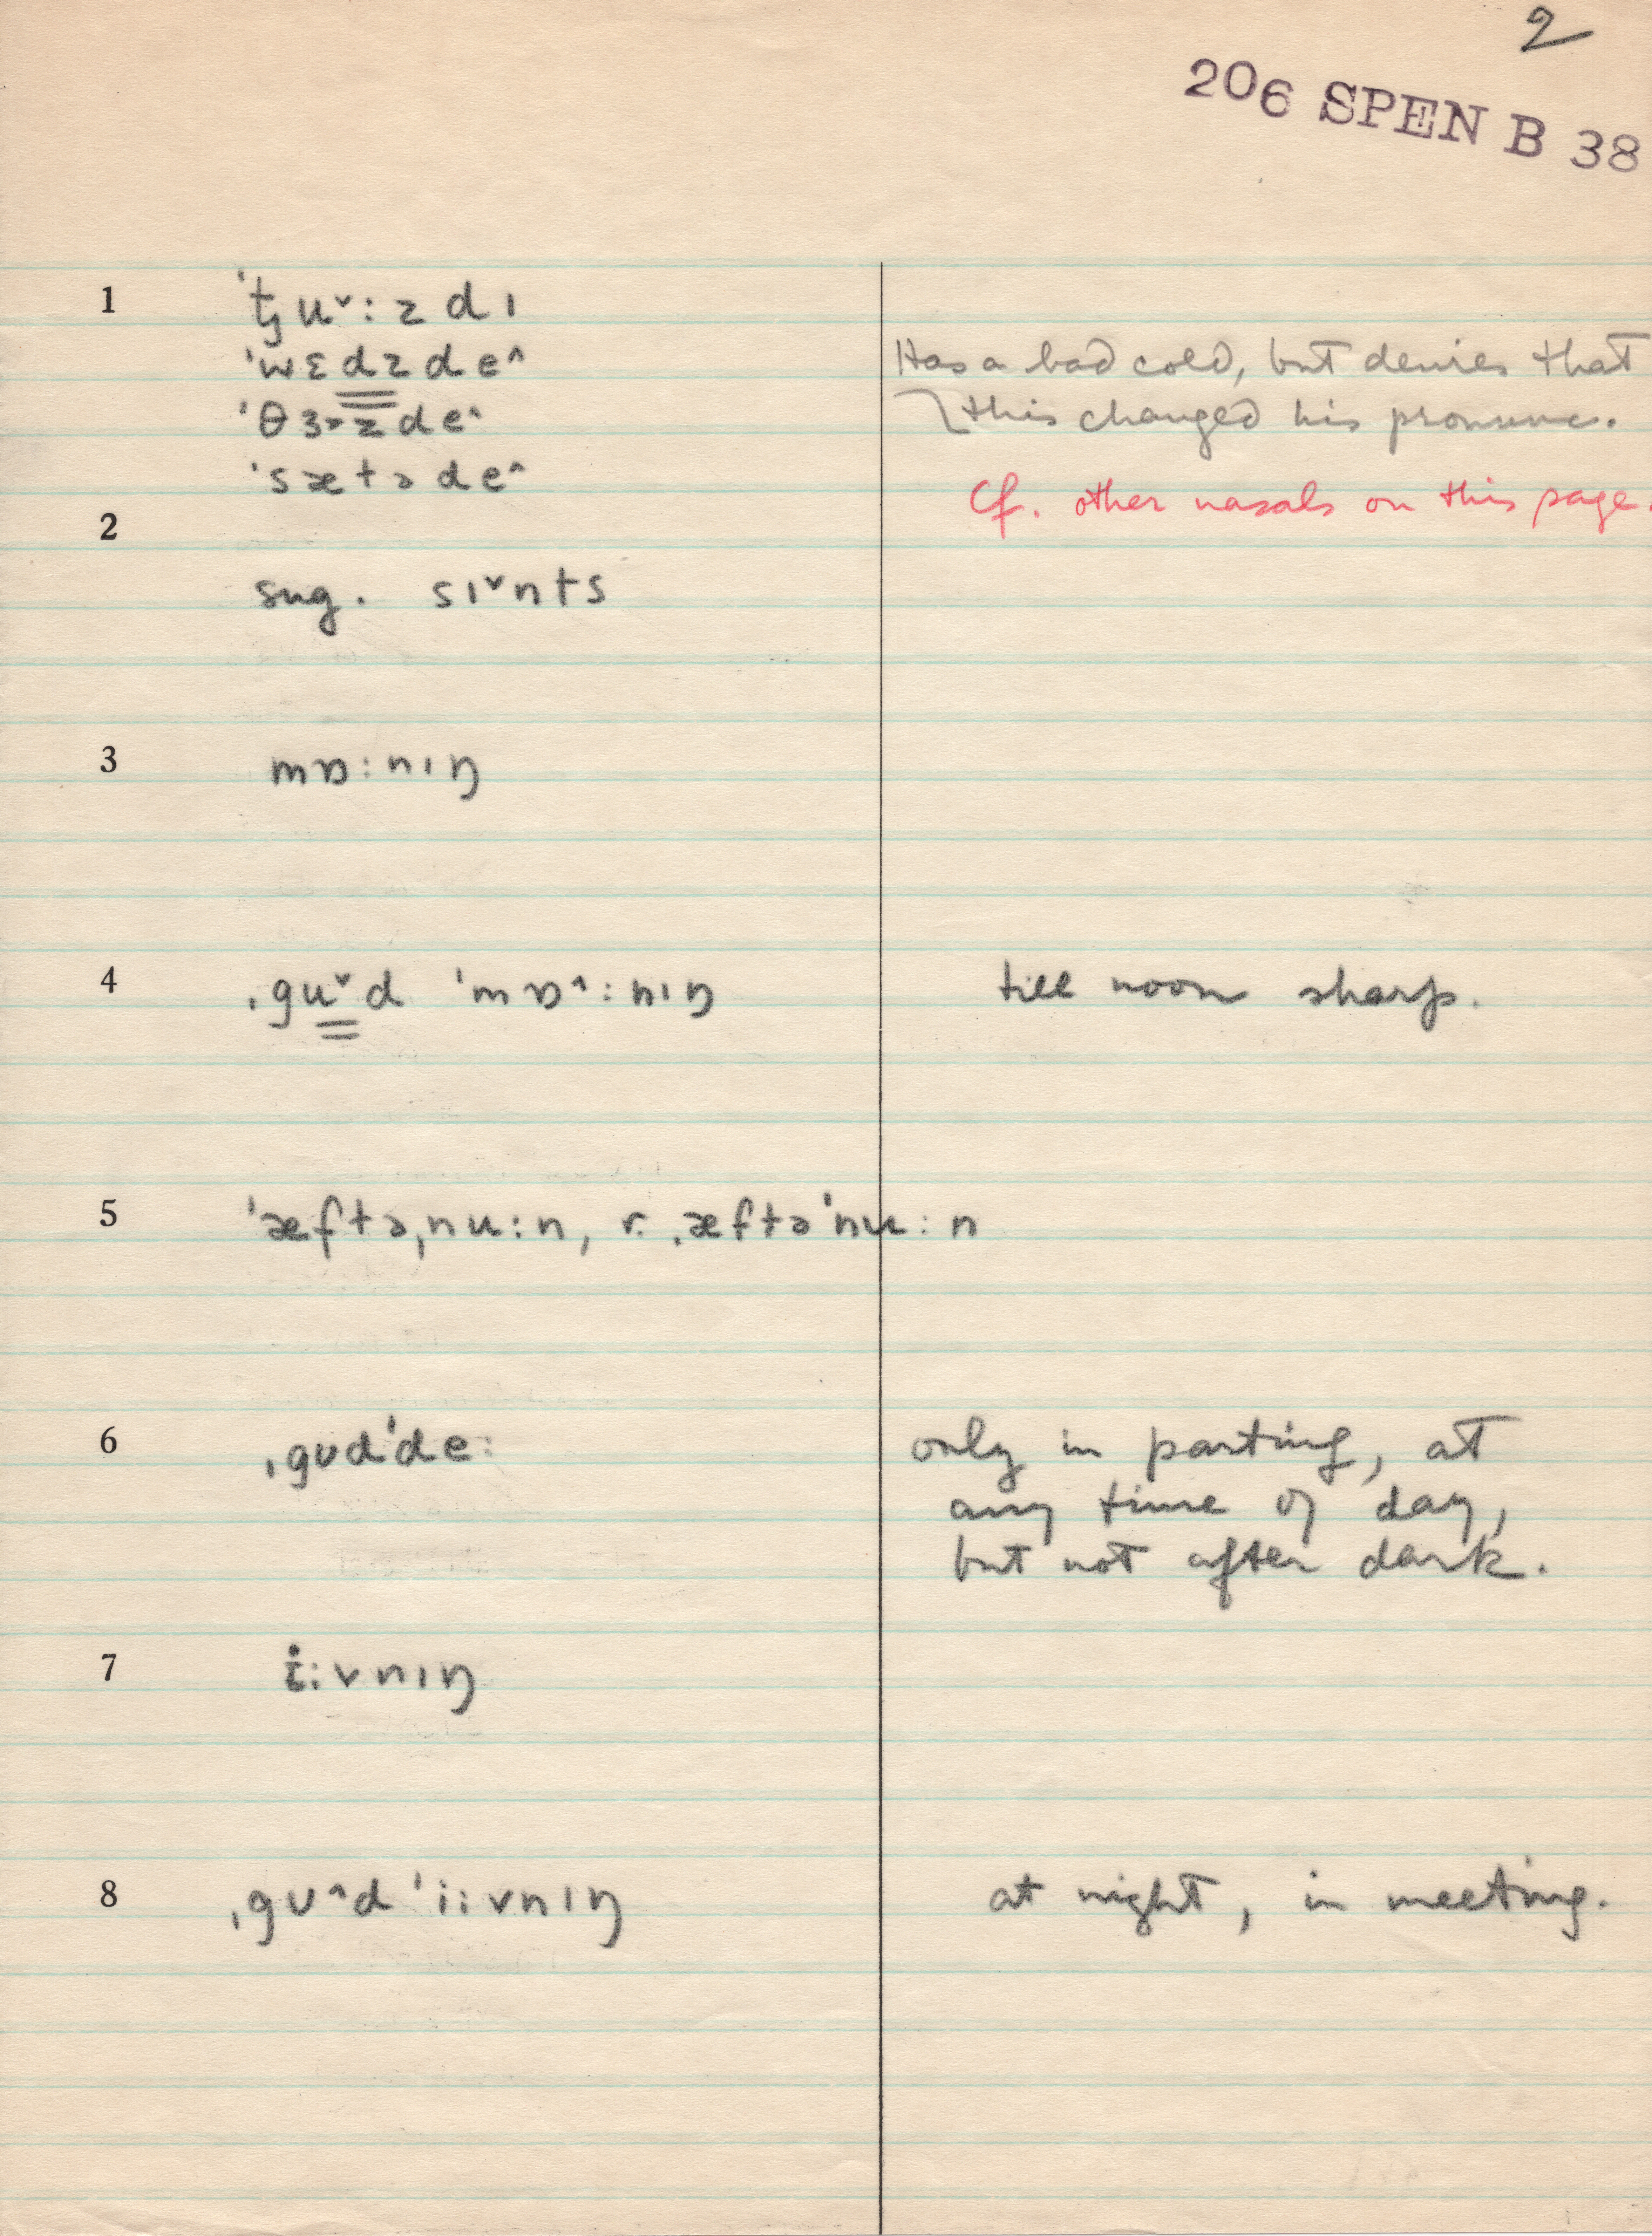 2
206 SPEN B 38
1 ˈtʃu˅:zdɪ
ˈwɛdzde^
Has a bad cold, but denies that
ˈθɜzde^
this changed his pronunc.
ˈsætəde^
Cf. other nasals on this page.
2
sug. sɪ˅nts
3 mɒ:nɪŋ
4 ˌgu˅d ˈmɒ^:nɪŋ till noon sharp.
5 ˈæftəˌnu:n, r. ˌæftəˈnu:n
6 ˌgʊdˈde: only in parting, at
any time of day,
but not after dark.
7 i:vnɪŋ
8 ˌgʊ^d ˈi:vnɪŋ at night, in meeting.